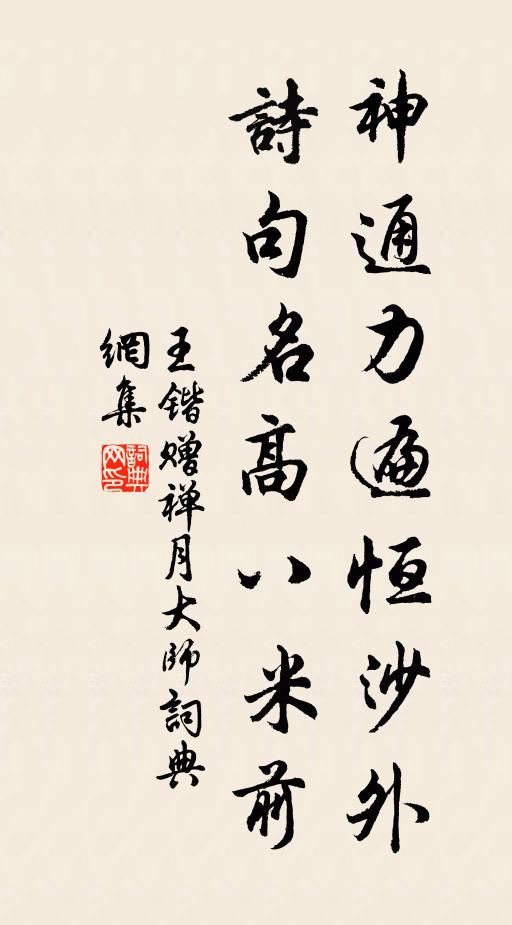 神通力遍恆沙外
詩句名高八米前
王鍇赠禅月大师詞典
網集
詞典
网印